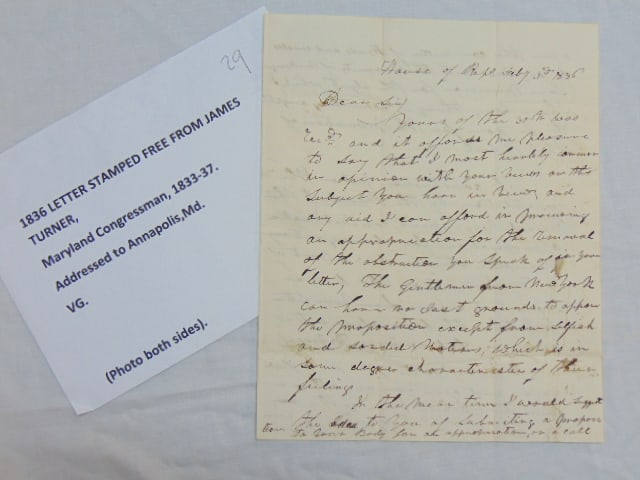 29
1836 LETTER STAMPED FREE FROM JAMES
TURNER,
Maryland Congressman, 1833-37.
Addressed to Annapolis,Md.
VG.
(Photo both sides).
House of Reps Feby 3d 1836
Dear Sir
Yours of the 30th was
Recd and it affords me pleasure
to say that I most heartily concur
in opinion with your views on the
Subject you have in view, and
any aid I can afford in procuring
an appropriation for the removal
of the obstruction you speak of in your
letter, The Gentlemen from New York
can have no just grounds to oppose
the proposition except from selfish
and sorded motives, which is in
some degree characteristic of their
feelings
In the mean time I would suggest
the idea to you of submitting a propos
tion to your Body for an appropriation, or a call